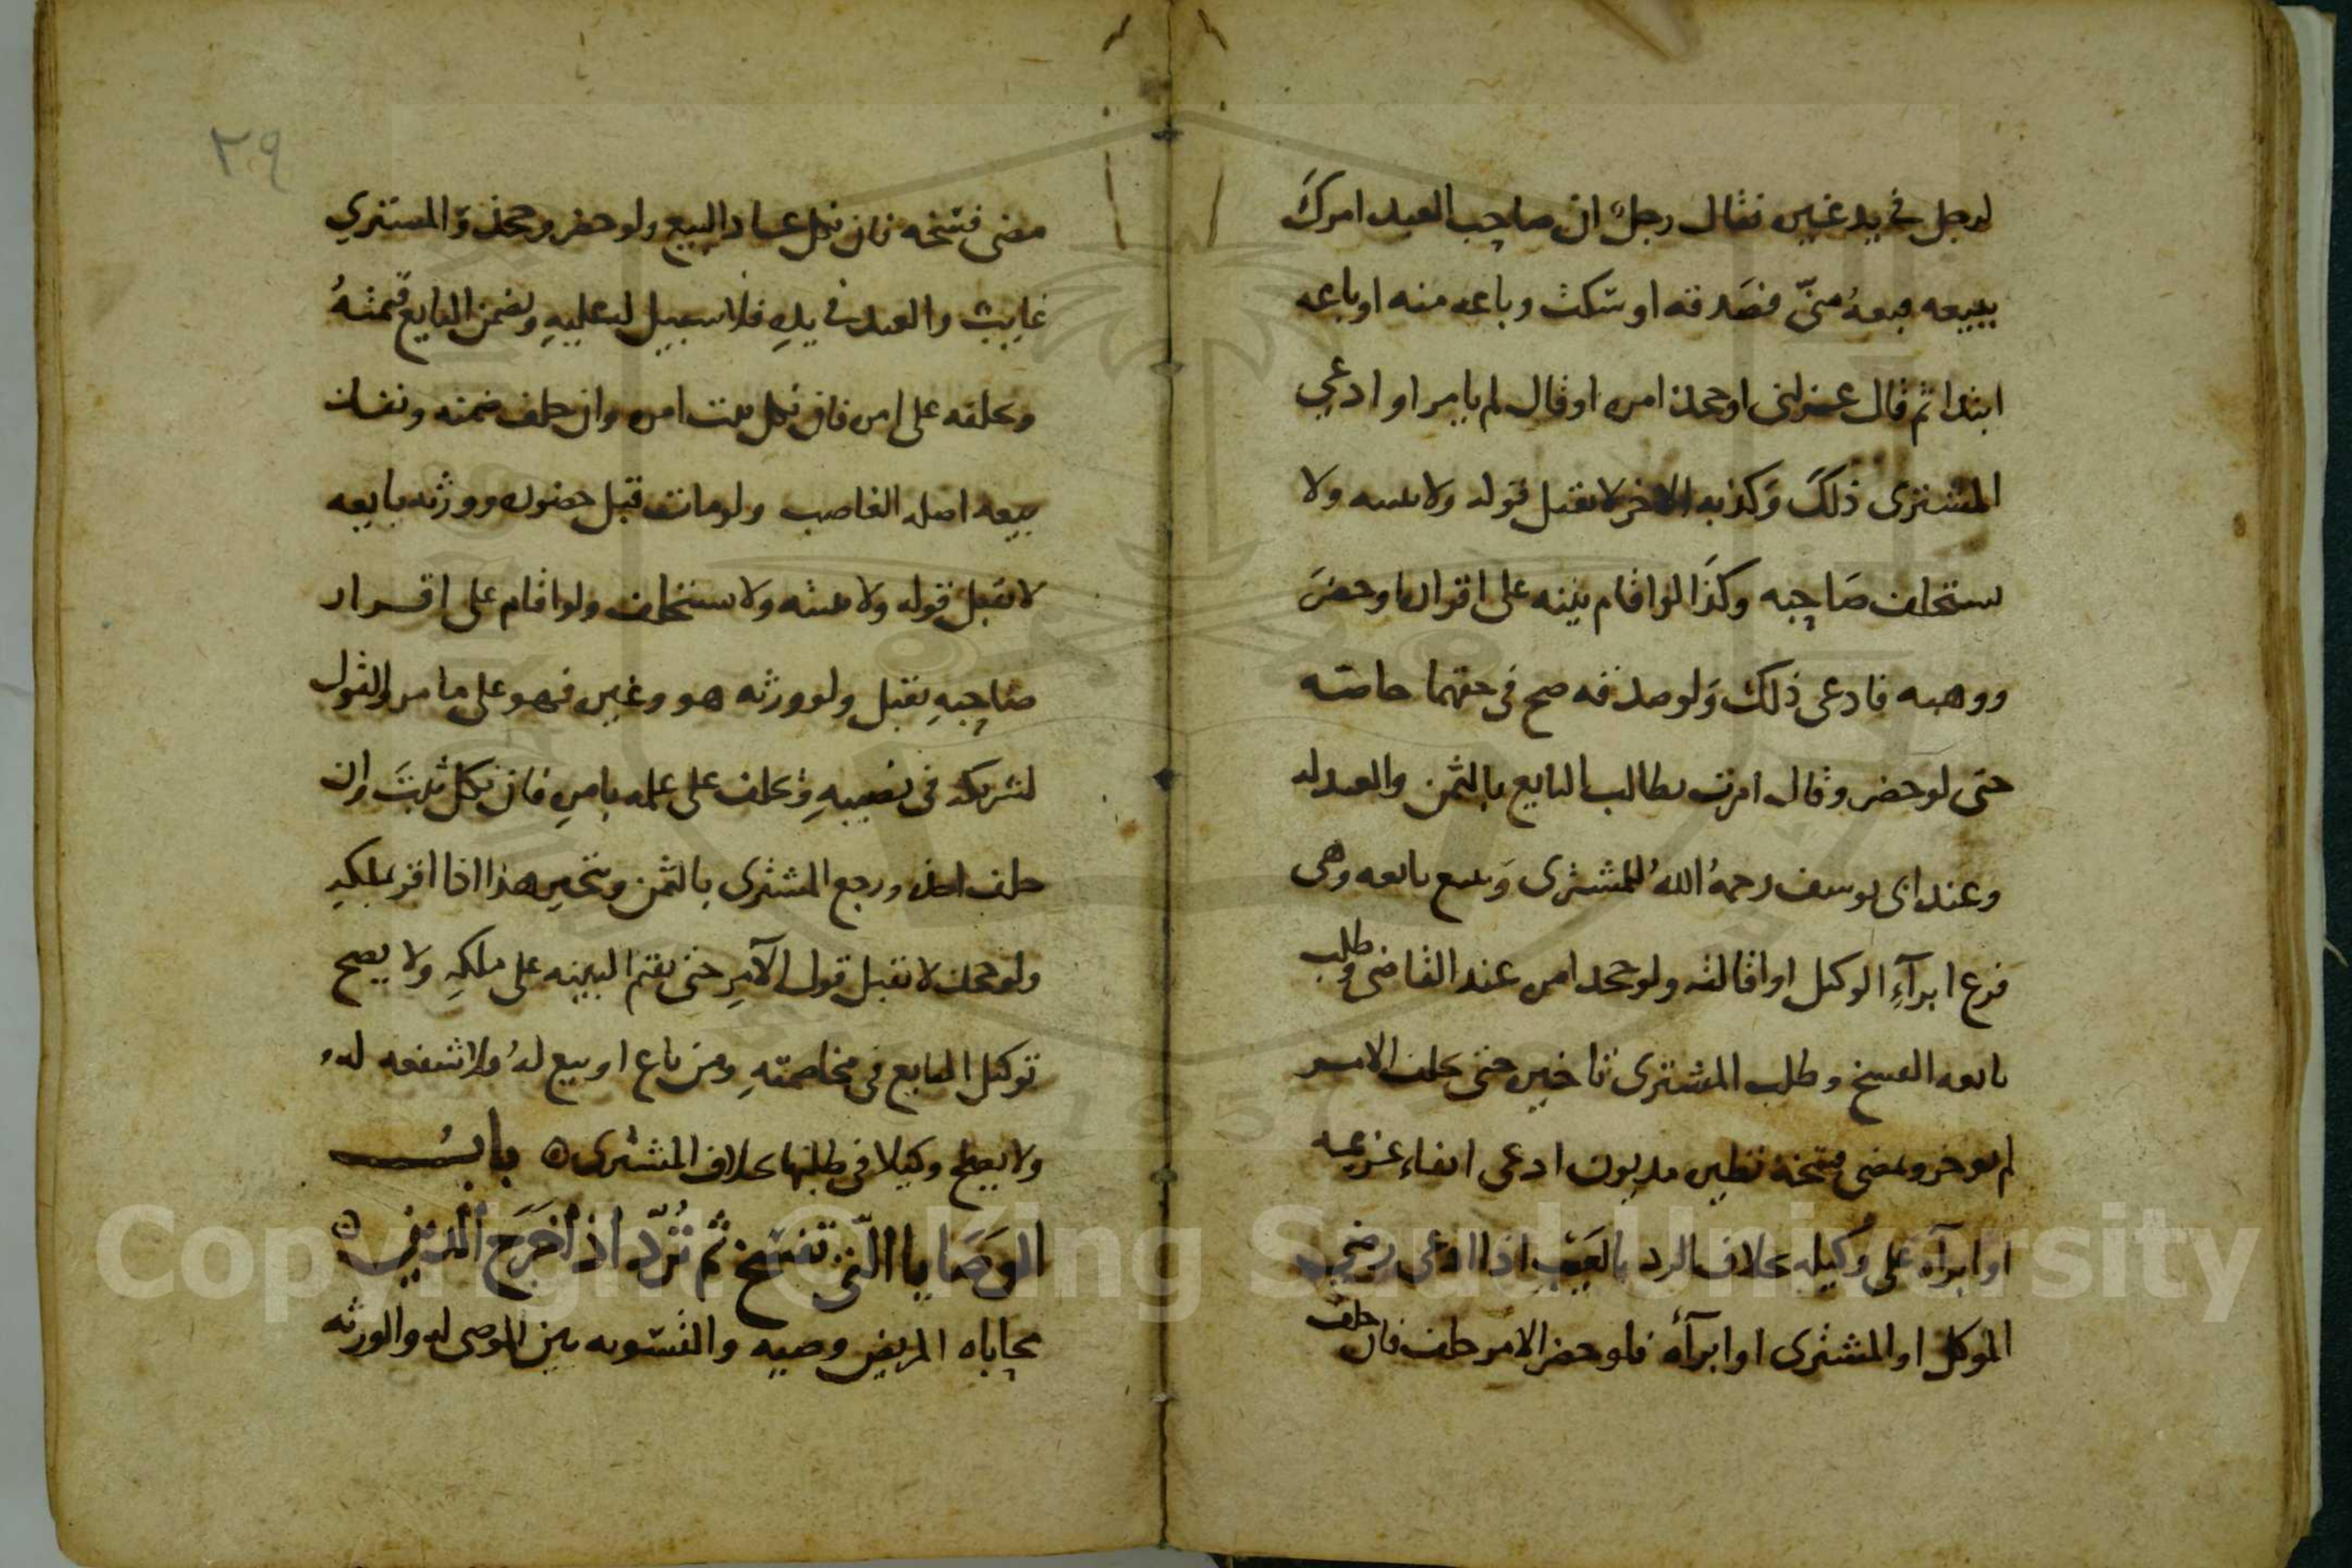 لرجل في يد غيره فقال رجل ان صاحب العبد امرك
ببيعه فبعه منى فصدقه او سكت وباعه منه او باعه
ابتدا ثم قال عزلنى او جحد امره او قال لم يامر او ادعى
المشترى ذلك وكذبه الاخر لا تقبل قوله ولا بينته ولا
يستحلف صاحبه وكذا لو اقام بينه على اقراره او حضر
ووهبه فادعى ذلك ولو صدقه صح فى حقهما خاصة
حتى لو حضر وقال امرت يطالب البايع بالثمن والعبد له
وعند ابى يوسف رحمه الله للمشترى ويتبع بايعه وهى
فرع ابراء الوكيل او اقالته ولو جحد امره عند القاضى وطلب
بايعه الفسخ وطلب المشترى تاخيره حتى يحلف الامر
لم يوخر ويمضى فسخه نظيره مديون ادعى ايفاء غريمه
او ابراءه على وكيله بخلاف الرد بالعيب اذا ادعى رضى
الموكل او المشترى او ابراءه فلو حضر الامر حلف فان حلف
مضى فسخه فان نكل عاد البيع ولو حضر وجحد والمشتري
غايب والعبد في يده فلا سبيل له عليه ويضمن البايع قيمته
ويحلفه على امره فان نكل ثبت امره وان حلف ضمنه ونفذ
بيعه اصله الغاصب ولو مات قبل حضوره وورثه بايعه
لا تقبل قوله ولا بينته ولا يستحلف ولو اقام على اقرار
صاحبه تقبل ولو ورثه هو وغيره فهو على ما مر والقول
لشريكه فى نصيبه ويحلف على علمه بامره فان نكل ثبت وان
حلف اخذه ورجع المشترى بالثمن وتخير هذا اذا اقر بملكه
ولو جحد لا تقبل قول الآمر حتى يقيم البينه على ملكه ولا يصح
توكيل البايع فى مخاصمته ومن باع او بيع له فلا شفعه له
ولا يصلح وكيلا فى طلبها بخلاف المشترى باب
الوصايا التى تفسخ ثم ترد اذ اخرج الدين
محاباه المريض وصيه والتسويه بين الموصى له والورثه
٢٩
Copyright © King Saud University
1957